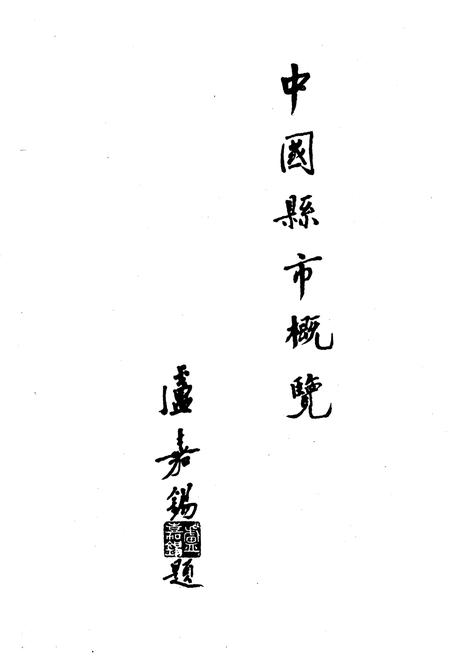 中國縣市概覽
盧嘉錫題
盧嘉錫